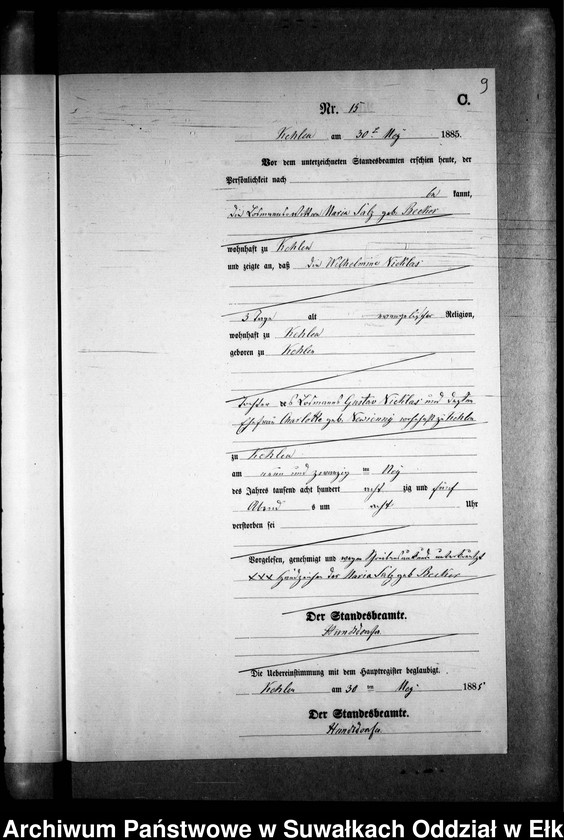 9
C.
Nr. 15
Kehlen am 30ten Mai 1885.
Vor dem unterzeichneten Standesbeamten erschien heute, der
Persönlichkeit nach
be kannt,
die Losmannswittwe Maria Salz geb. Becker
wohnhaft zu Kehlen
und zeigte an, daß die Wilhelmine Nicklas
3 Tage alt evangelischer Religion,
wohnhaft zu Kehlen
geboren zu Kehlen
Tochter des Losmanns Gustav Nicklas und dessen
Ehefrau Charlotte geb. wohnhaft zu Kehlen
zu Kehlen
am neun und zwanzig ten Mai
des Jahres tausend acht hundert acht zig und fünf
Abend s um acht Uhr
verstorben sei
Vorgelesen, genehmigt und wegen Schreibensunkunde unterkreuzt
+++ Handzeichen der Maria Salz geb. Becker
Der Standesbeamte.
Die Uebereinstimmung mit dem Hauptregister beglaubigt.
Kehlen am 30 ten Mai 1885
Der Standesbeamte.
Archiwum Państwowe w Suwałkach Oddział w Ełk